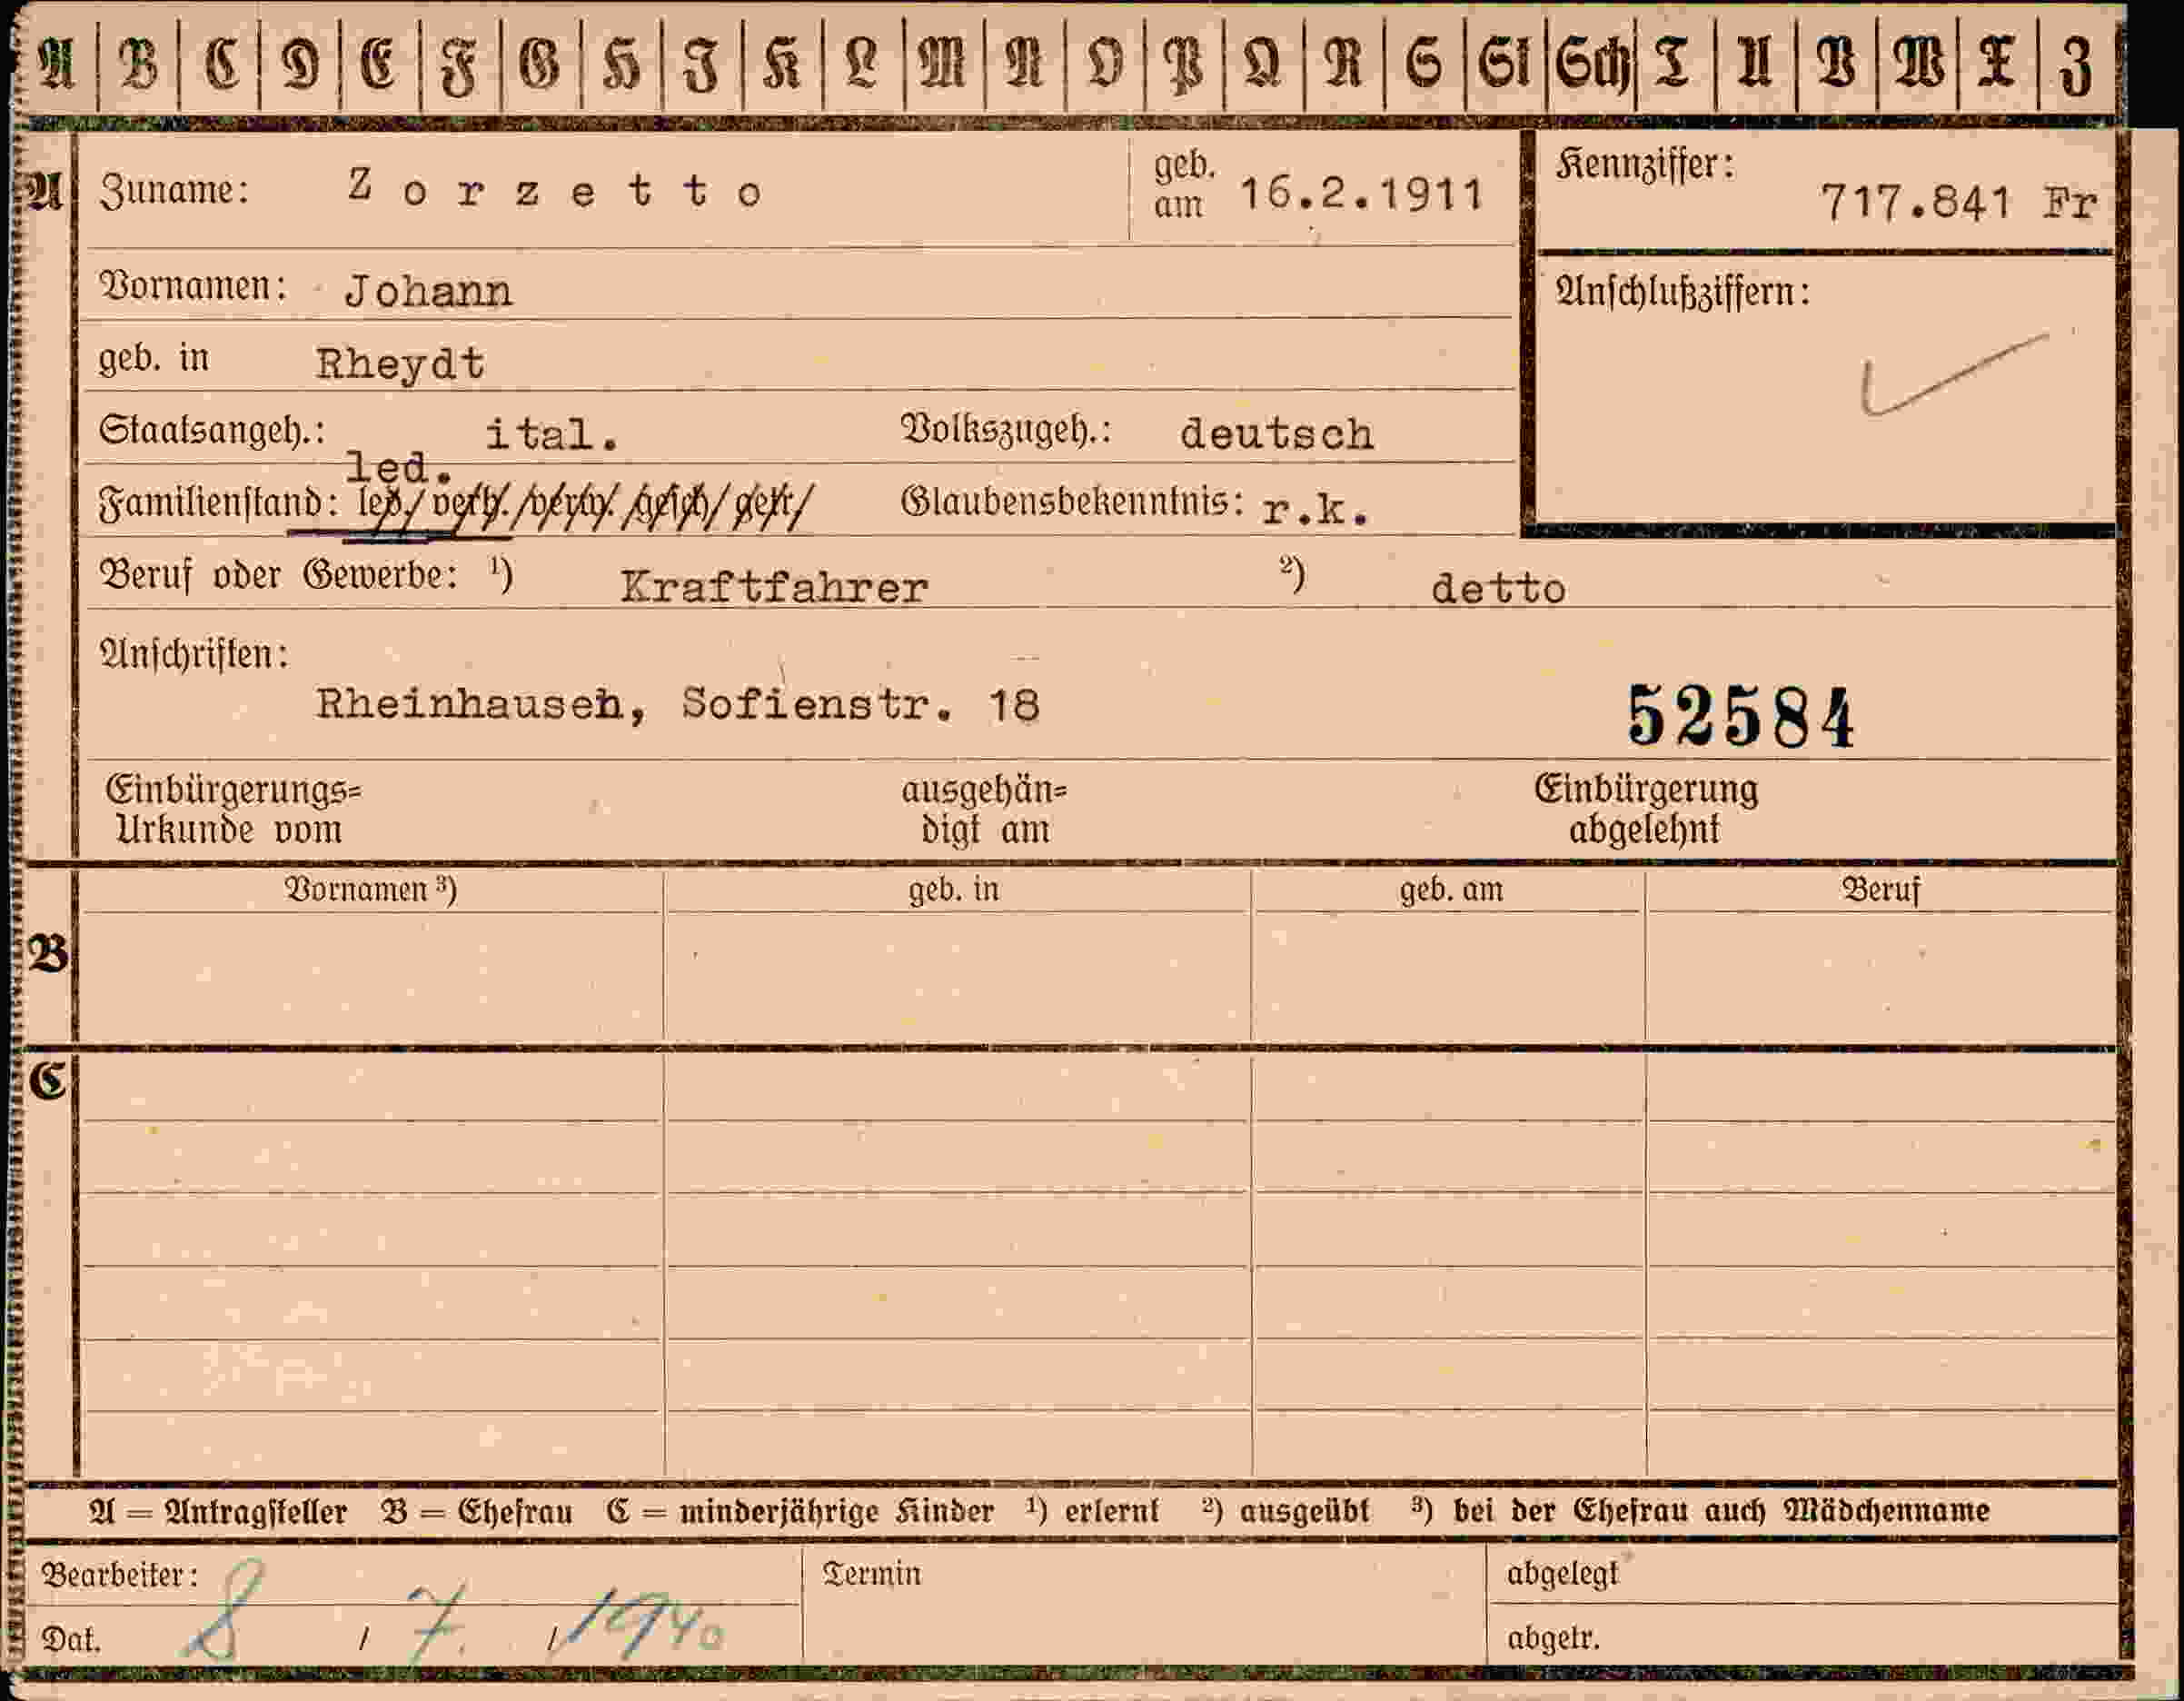 A B C D E F G H I K L M N O P Q R S St Sch T U V W X Z
A Zuname: Zorzetto geb. am 16.2.1911 Kennziffer: 717.841 Fr
Vornamen: Johann Anschlußziffern:
geb. in Rheydt
Staatsangeh.: ital. Volkszugeh.: deutsch
led.
Familienstand: led./verh./verw./gesch/getr/ Glaubensbekenntnis: r.k.
Beruf oder Gewerbe: ¹) Kraftfahrer ²) detto
Anschriften:
Rheinhausen, Sofienstr. 18 52584
Einbürgerungs= ausgehän= Einbürgerung
Urkunde vom digt am abgelehnt
Vornamen ³) geb. in geb. am Beruf
B
C
A = Antragsteller B = Ehefrau C = minderjährige Kinder ¹) erlernt ²) ausgeübt ³) bei der Ehefrau auch Mädchenname
Bearbeiter: Termin abgelegt
Dat. 8 / 7. / 1940 abgetr.